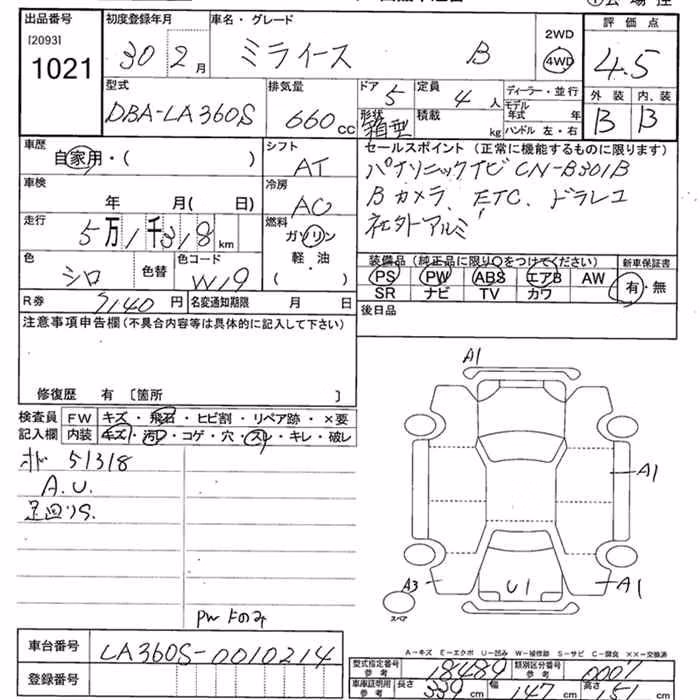 出品番号 初度登録年月 車名・グレード 2WD 評価点
[2093] 1021 30年2月 ミライース B 4WD 4.5
型式 排気量 ドア 定員 ディーラー・並行 外装 内装
DBA-LA360S 660cc 5 4人 モデル年式 年 B B
形状 箱型 積載 kg ハンドル 左・右
車歴 シフト セールスポイント(正常に機能するものに限ります)
自家用・( ) AT パナソニックナビ CN-B301B
車検 冷房 Bカメラ、ETC、ドラレコ
年 月( 日) AC 社外アルミ
走行 燃料
5万1千318km ガソリン
色 色替 色コード 軽・油 装備品(純正品に限り○をつけてください) 新車保証書
シロ W19 ( ) PS PW ABS エアB AW 有・無
SR ナビ TV カワ
R券 7140円 名変通知期限 月 日 後日品
注意事項申告欄(不具合内容等は具体的に記入して下さい)
修復歴 有 [箇所 ]
検査員 FW キズ・飛石・ヒビ割・リペア跡・×要
記入欄 内装 キズ・汚レ・コゲ・穴・スレ・キレ・破レ
オド 51318
A.U.
足回りS.
PWトのみ
A1
A1
A3 U1 A1
スペア
車台番号 LA360S-0010214
登録番号
A-キズ E-エクボ U-凹み W-補修跡 S-サビ C-腐食 ××-交換済
型式指定番号 参考 18489 類別区分番号 参考 0007
車庫証明用 参考 長さ 339cm 幅 147cm 高さ 151cm